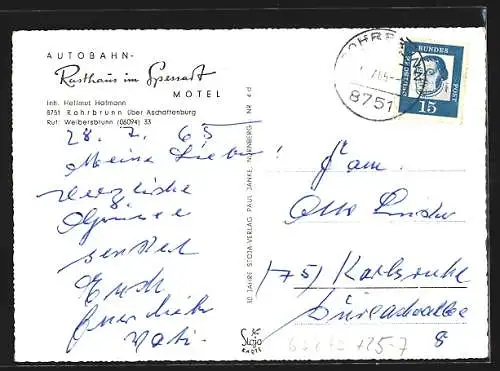 AUTOBAHN-
Rasthaus im Spessart
MOTEL
Inh. Hellmut Hofmann
8751 Rohrbrunn über Aschaffenburg
Ruf: Weibersbrunn (06094) 33
28. 7. 65
Meine Lieben!
herzliche
Grüsse
sendet
Euch
Euer lieber
Vati.
10 JAHRE STOJA-VERLAG PAUL JANKE, NÜRNBERG NR 4d
Stoja
8751
DEUTSCHE
BUNDESPOST
15
Fam.
Otto
(75) Karlsruhe